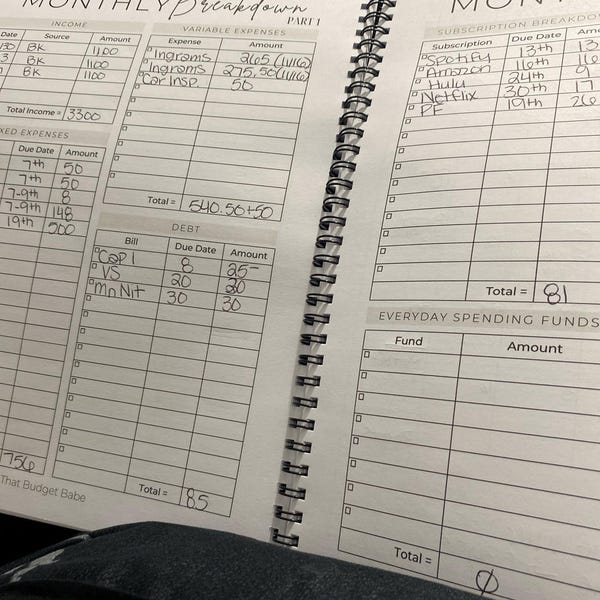 MONTHLY Breakdown
PART 1
INCOME
Date Source Amount
BK 1100
3 BK 1100
BK 1100
Total Income = 3300
XED EXPENSES
Due Date Amount
7th 50
7th 50
7-9th 8
7-9th 148
19th 500
756
That Budget Babe
VARIABLE EXPENSES
Expense Amount
Ingrams 265 (11/16)
Ingrams 275.50 (11/16)
Car Insp. 50
Total = 540.50+50
DEBT
Bill Due Date Amount
Cap 1 8 25-
VS 20 30
Mn Nit 30 30
Total = 85
MON
SUBSCRIPTION BREAKDO
Subscription Due Date Amo
Spotify 13th 13
Amazon 16th 16
Hulu 24th 9
Netflix 30th 17
PF 19th 26
Total = 81
EVERYDAY SPENDING FUNDS
Fund Amount
Total = Ø